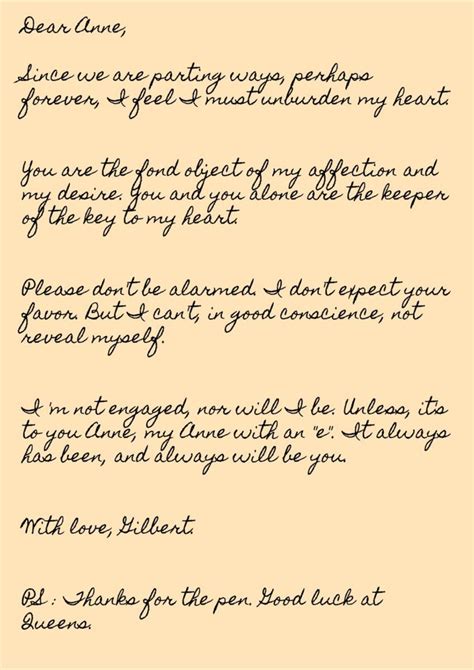 Dear Anne,
Since we are parting ways, perhaps
forever, I feel I must unburden my heart.
You are the fond object of my affection and
my desire. You and you alone are the keeper
of the key to my heart.
Please don't be alarmed. I don't expect your
favor. But I can't, in good conscience, not
reveal myself.
I'm not engaged, nor will I be. Unless, it's
to you Anne, my Anne with an "e". It always
has been, and always will be you.
With love, Gilbert.
PS : Thanks for the pen. Good luck at
Queens.